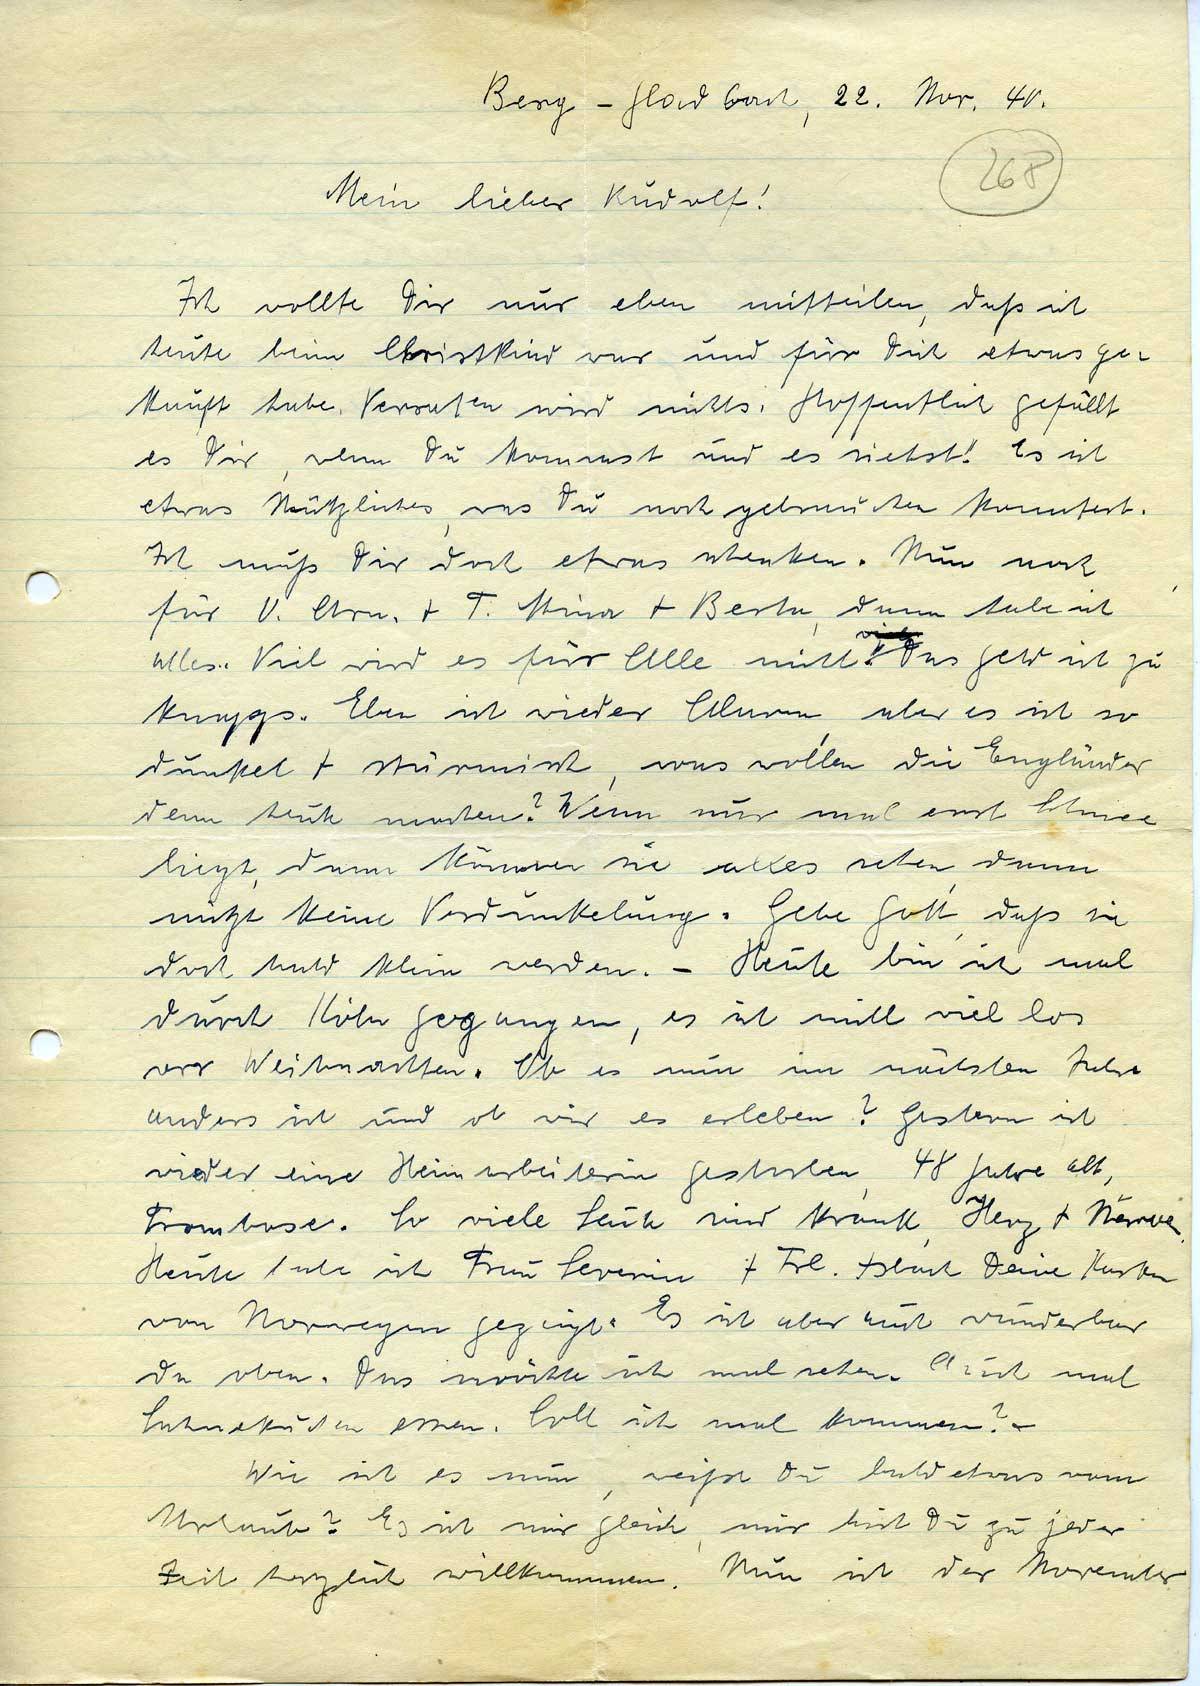 Berg-Gladbach, 22. Nov. 40.
268
Mein lieber Rudolf!
Ich wollte Dir nur eben mitteilen, daß ich
heute beim Christkind war und für Dich etwas ge-
kauft habe. Verraten wird nichts. Hoffentlich gefällt
es Dir, wenn Du kommst und es siehst!! Es ist
etwas Nützliches, was Du noch gebrauchen konntest.
Ich muß Dir doch etwas schenken. Nun noch
für V. Arn. + T. Mina + Berta, dann habe ich
alles. Viel wird es für Alle nicht! Das Geld ist zu
knapp. Eben ist wieder Alarm, aber es ist so
dunkel + stürmisch, was wollen die Engländer
denn heute machen? Wenn nur mal erst Schnee
liegt, dann können sie alles sehen, dann
nützt keine Verdunkelung. Gebe Gott, daß sie
doch bald klein werden. - Heute bin ich mal
durch Köln gegangen, es ist nicht viel los
vor Weihnachten. Ob es nun im nächsten Jahre
anders ist und ob wir es erleben? Gestern ist
wieder eine Heimarbeiterin gestorben, 48 Jahre alt,
Trombose. So viele Leute sind krank, Herz + Nerven.
Heute habe ich Frau Severin + Frl. Deine Karten
von Norwegen gezeigt. Es ist aber auch wunderbar
da oben. Das möchte ich mal sehen. Auch mal
Sahnekuchen essen. Soll ich mal kommen? -
Wie ist es nun, weißt Du bald etwas vom
Urlaub? Es ist mir gleich, mir bist Du zu jeder
Zeit herzlich willkommen. Nun ist der November